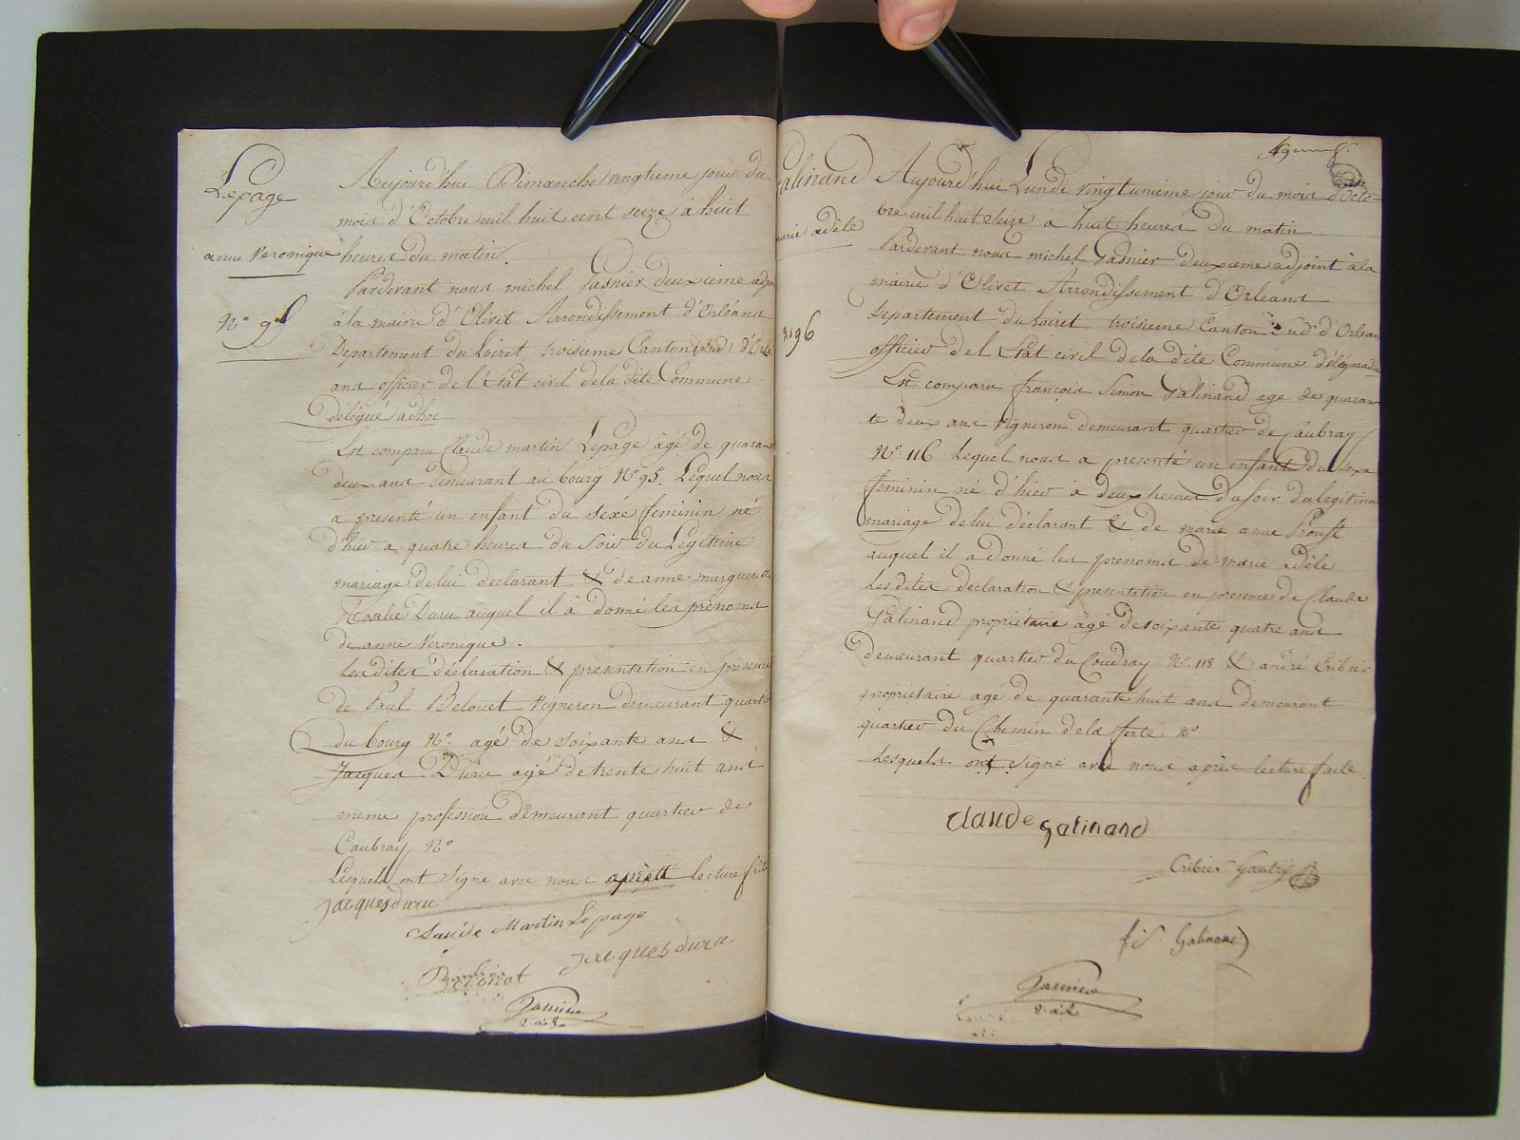 Lepage
anne Veronique
N° 95
Aujourd'hui Dimanche vingtieme jour du
mois d'Octobre mil huit cent seize à huit
heures du matin.
Pardevant nous michel Gasnier deuxieme adjoint
à la mairie d'Olivet Arrondissement d'Orléans
Departement du Loiret troisieme Canton (sud) d'Orlé
ans officier de l'Etat civil de la dite Commune
délégué adhoc
Est comparu Claude martin Lepage âgé de quarante
deux ans demeurant au bourg N° 95. Lequel nous
a presenté un enfant du séxe feminin né
d'hier a quatre heures du Soir du Légitime
mariage de lui declarant & de anne marguerite
Duru auquel il à donné les prénoms
de anne Veronique.
Les dites déclaration & presentation en presence
de Paul Belouet Vigneron demeurant quartier
du bourg N° agé de soixante ans &
Jacques Duru agé de trente huit ans
même profession demeurant quartier de
Caubray N°
Lesquels ont signé avec nous après lecture faite
jacquesduru
Claude Martin Lepage
jacques duru
Belouet
Gasnier
Galinand
marie adèle
N° 96
Aujourd'hui Lundi vingtunieme jour du mois d'octo-
bre mil huit seize a huit heures du matin
Pardevant nous michel Gasnier deuxieme adjoint à la
mairie d'Olivet Arrondissement d'Orleans
Departement du Loiret troisieme Canton Sud d'Orleans
officier de l'Etat civil de la dite Commune délégué
Est comparu françois Simon Galinand agé de quaran
te deux ans Vigneron demeurant quartier de Caubray
N° 116 Lequel nous a presenté un enfant du sexe
feminin né d'hier à deux heures du soir du legitime
mariage de lui déclarant & de marie anne Proust
auquel il a donné les prenoms de marie adèle
Les dites declaration & presentation en presence de Claude
Galinand propriétaire âgé de soixante quatre ans
demeurant quartier du Coudray N° 118 & andré Cribier
propriétaire agé de quarante huit ans demeurant
quartier du Chemin de la ferté N°
Lesquels ont signé avec nous après lecture faite
claude galinand
Cribier Gautry
fs galinand
Gasnier